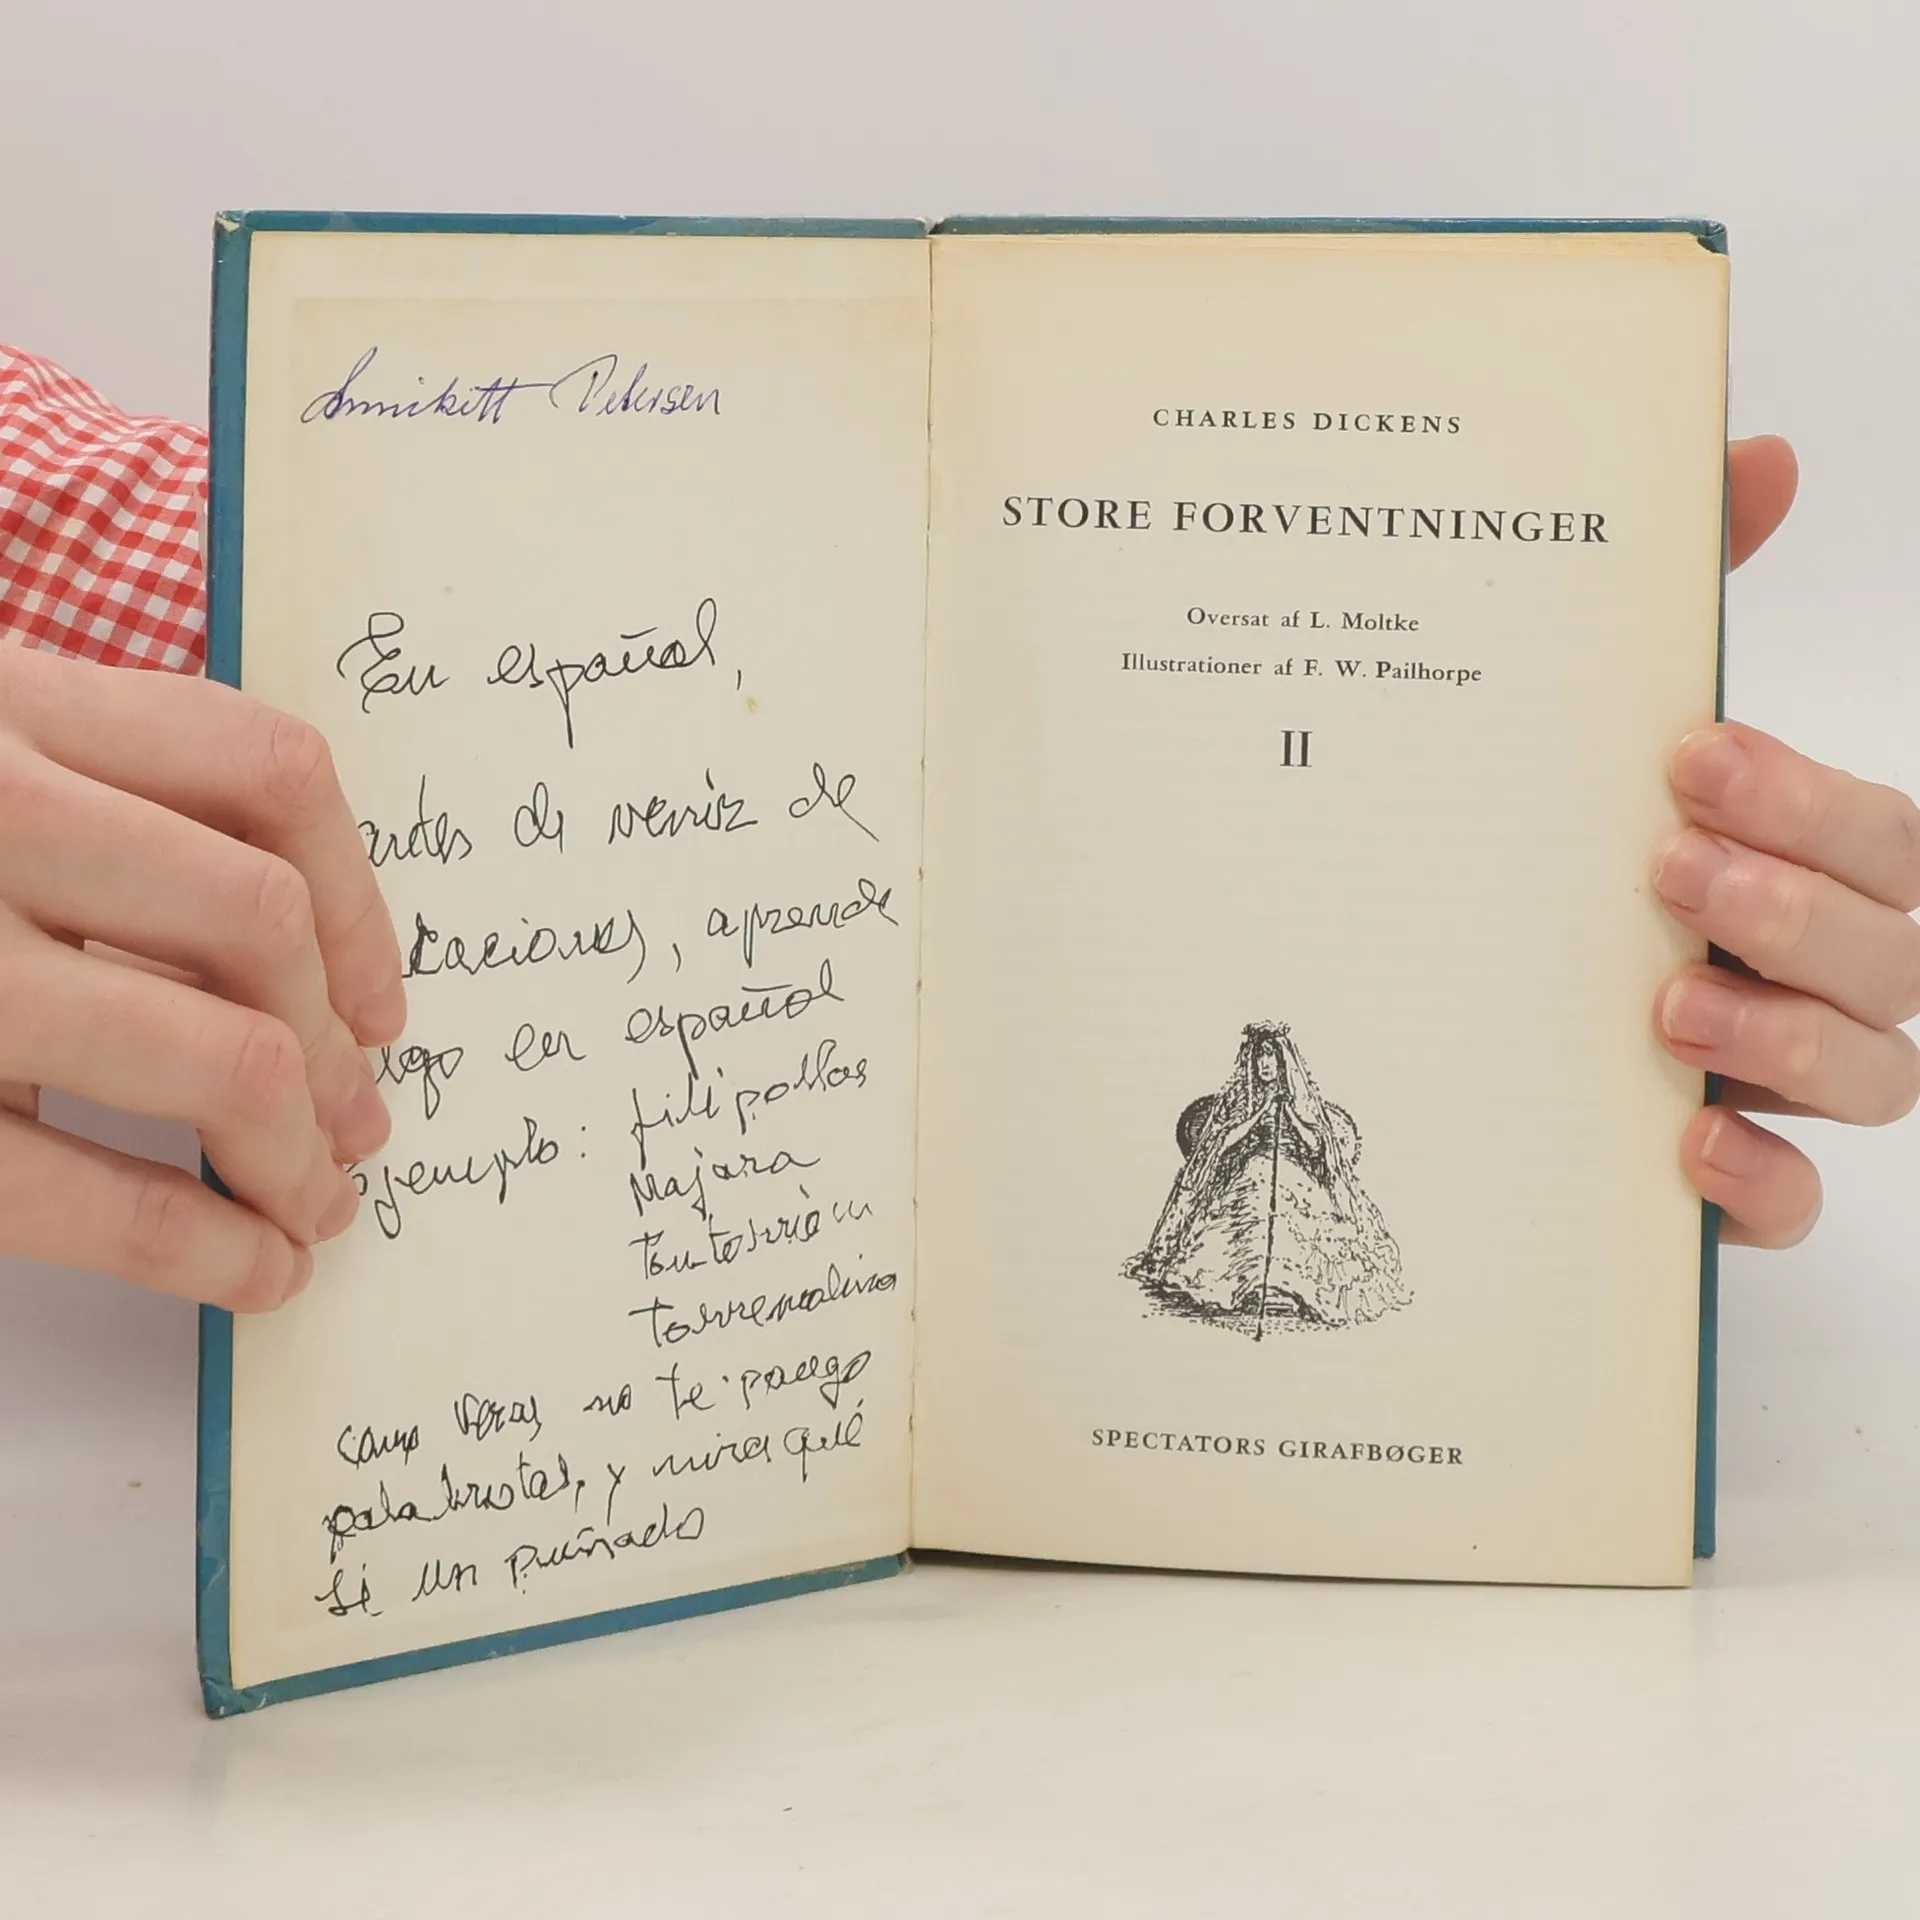 Annikitt Petersen
En español,
antes de veniz de
caciones, aprende
algo en español
ejemplo: filipollas
Majara
tontorrión
torremolina
como veras no te pongo
palabrotas, y mira qué
sé un puñado
CHARLES DICKENS
STORE FORVENTNINGER
Oversat af L. Moltke
Illustrationer af F. W. Pailhorpe
II
SPECTATORS GIRAFBØGER